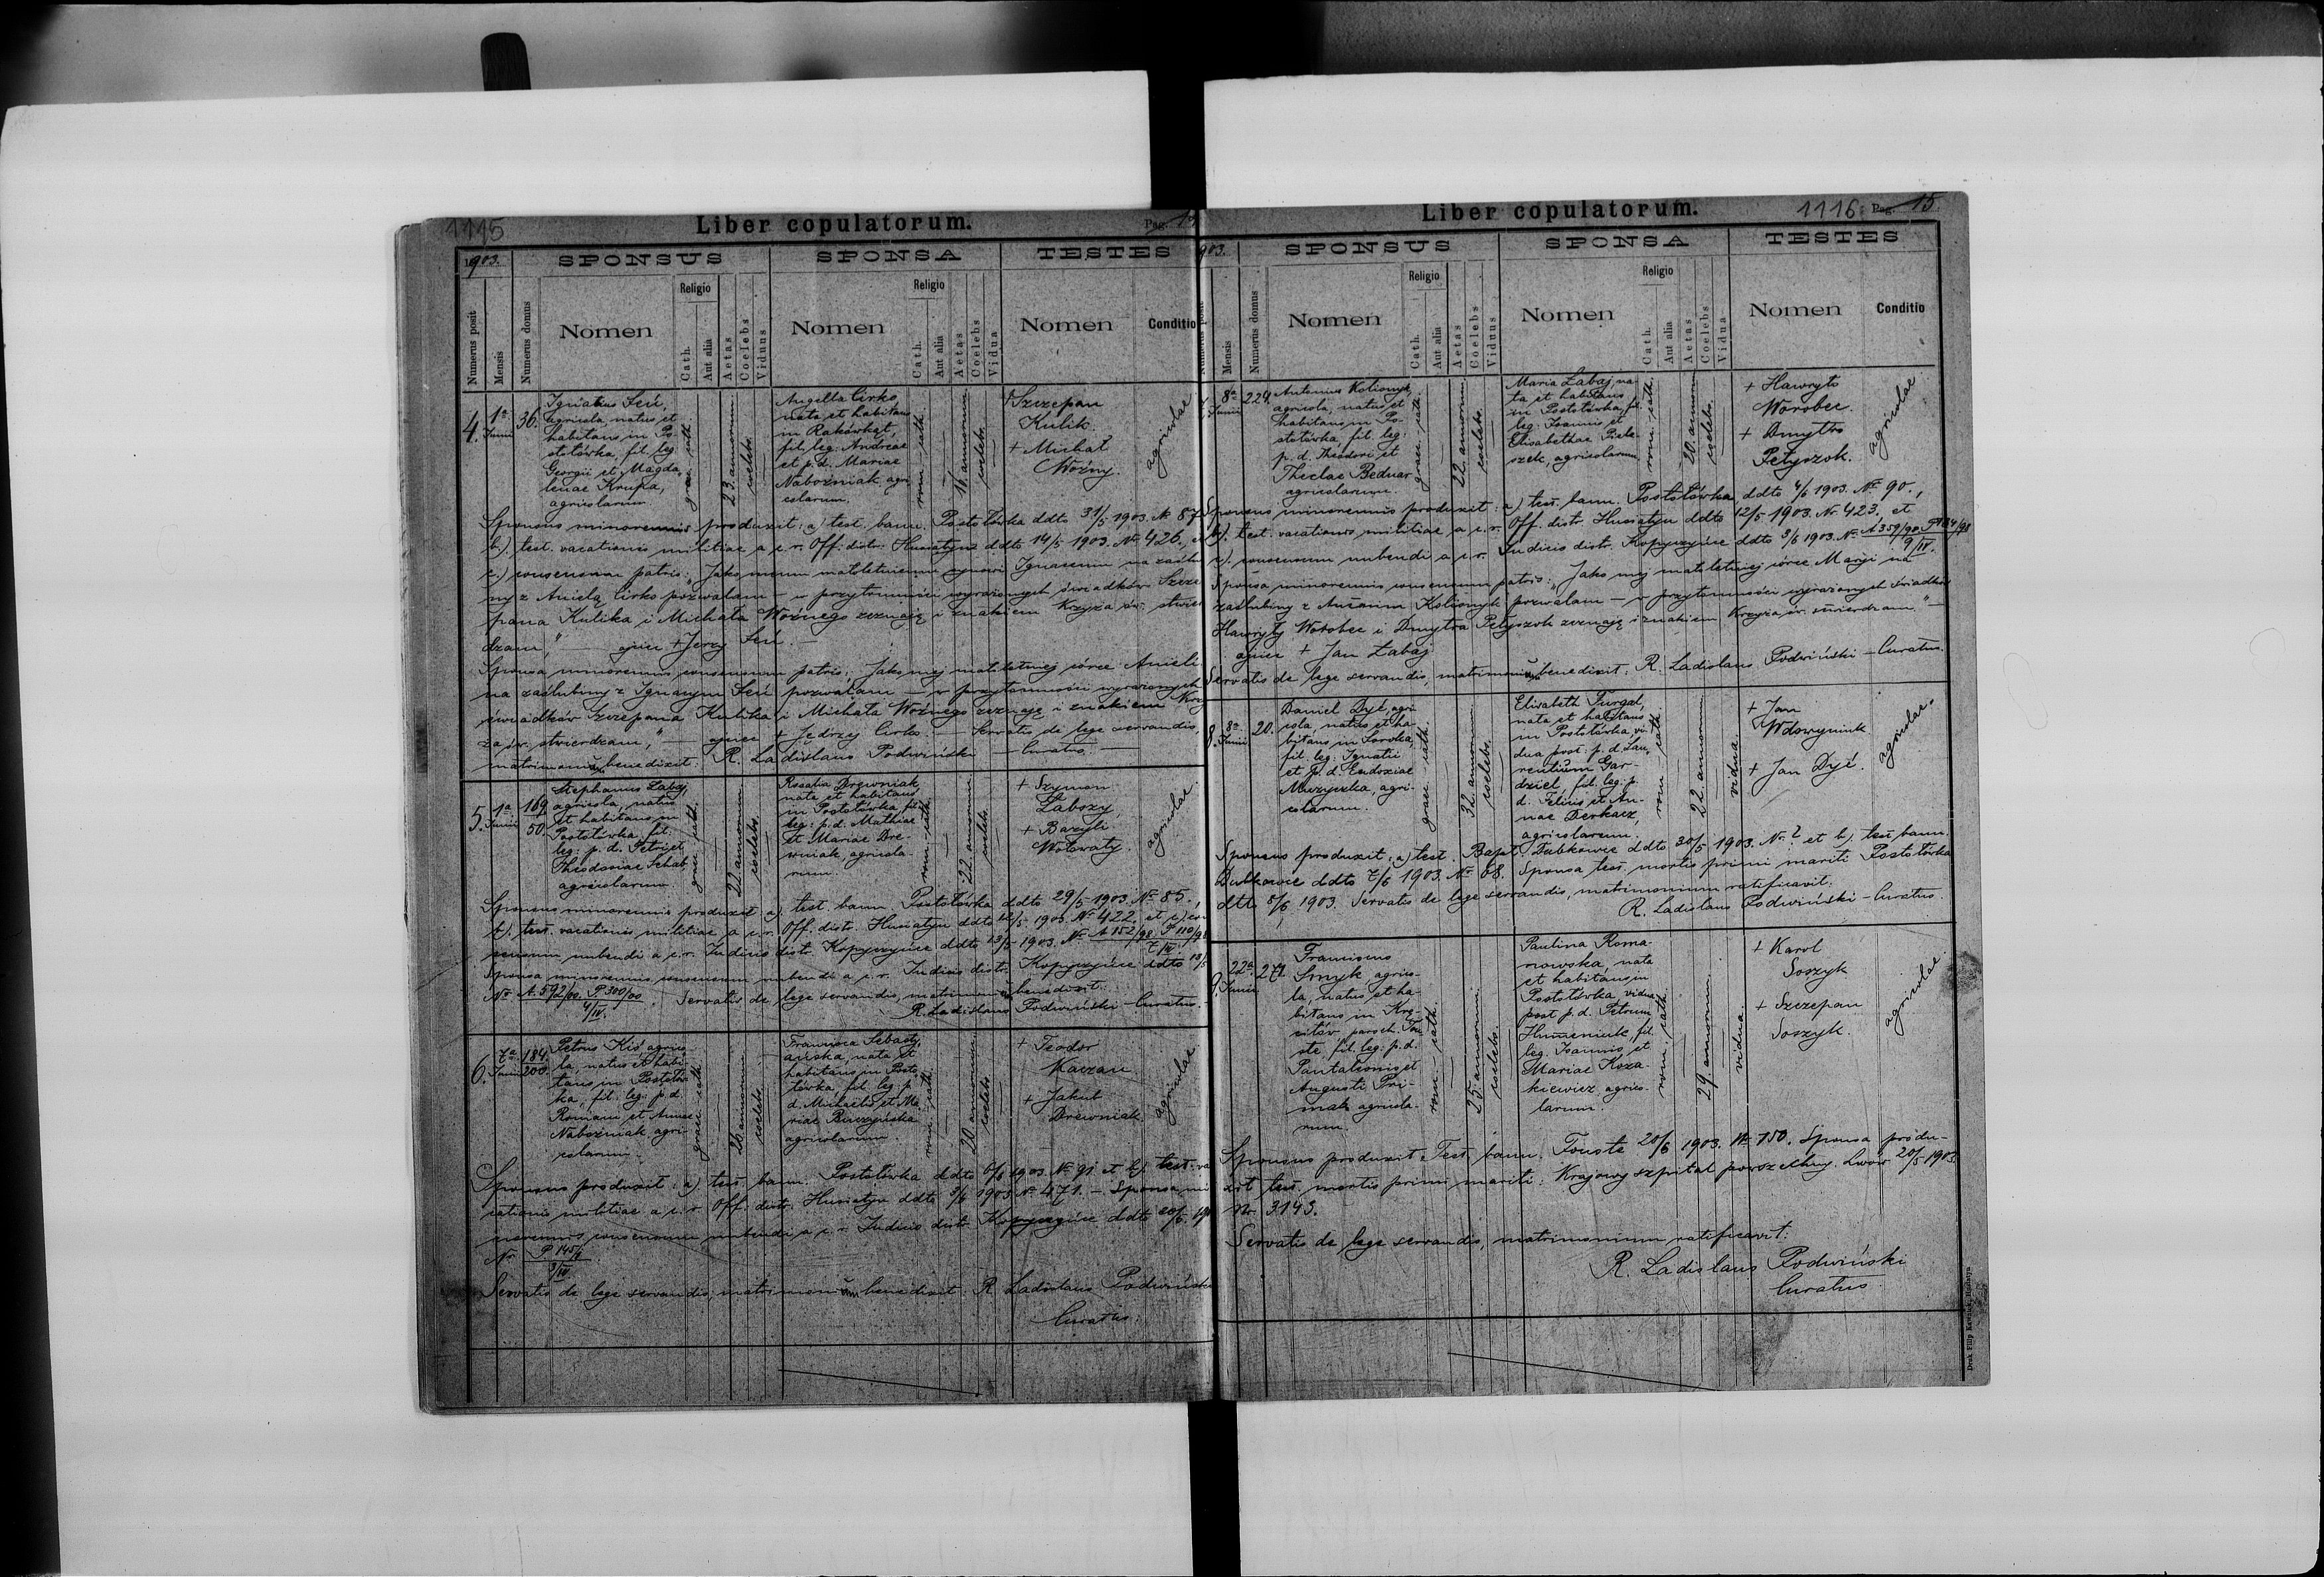 1115
Liber copulatorum.
Pag.
1903.
SPONSUS
SPONSA
TESTES
Numerus posit
Mensis
Numerus domus
Nomen
Religio
Cath.
Aut alia
Aetas
Coelebs
Viduus
Nomen
Religio
Cath.
Aut alia
Aetas
Coelebs
Vidua
Nomen
Conditio
4.
1a
Junii
36.
Ignatius Seń,
agricola, natus et
habitans in Po-
stołówka, fil. leg.
Georgii et Magda-
lenae Krupa,
agricolarum.
graec. cath.
23. annorum
coelebs.
Angella Cirko,
nata et habitans
in Rakówkąt,
fil. leg. Andreae
et p. d. Mariae
Nabożniak, agri-
colarum.
rom. cath.
16. annorum
coelebs.
+ Szczepan
Kulik.
+ Michał
Woźny.
agricolae
Sponsus minorennis produxit: a) test. bann. Postołówka ddto 31/5 1903. № 87
b.) test. vacationis militiae a c. r. Off. distr. Husiatyn ddto 14/5 1903. № 426,
c.) consensum patris: "Jako memu małoletniemu synowi Ignacemu na zaślu
ny z Anielą Cirko pozwalam – w przytomności wyrażonych świadków Szcze
pana Kulika i Michała Woźnego zeznaję i znakiem Krzyża św. stwier
dzam," – ojciec + Jerzy Seń.
Sponsa minorennis consensum patris: "Jako mej małoletniej córce Anieli
na zaślubiny z Ignacym Seń pozwalam – w przytomności wyrażonych
świadków Szczepana Kulika i Michała Woźnego zeznaję i znakiem Krzy
ża św. stwierdzam," – ojciec + Jędrzej Cirko. – Servatis de lege servandis,
matrimonium benedixit: R. Ladislaus Podwiński – Curatus. –
5.
1a
Junii
169
50.
Stephanus Łabaj,
agricola, natus
et habitans in
Postołówka, fil.
leg. p. d. Petri et
Theodosiae Schab,
agricolarum.
graec. cath.
22 annorum
coelebs.
Rosalia Drewniak,
nata et habitans
in Postołówka, fil.
leg. p. d. Mathiae
et Mariae Dre-
wniak, agricola-
rum.
rom. cath.
22. annorum
coelebs.
+ Szymon
Łabozy,
+ Bazyli
Wołowaty.
agricolae.
Sponsus minorennis produxit a). test. bann. Postołówka ddto 29/5 1903. № 85.,
b). test. vacationis militiae a c. r. Off. distr. Husiatyn ddto 12/5 1903 № 422, et c) con
sensum nubendi a c. r. Judicio distr. Kopyczyńce ddto 13/5 1903. № A 152/98 P 110/98
7/IV.
Sponsa minorennis consensum nubendi a c. r. Judicio distr. Kopyczyńce ddto 13/5
№ A. 592/00. P. 300/00
4/IV.
Servatis de lege servandis, matrimonium benedixit:
R. Ladislaus Podwiński – Curatus.
6.
7a
Junii
184.
200.
Petrus Kiś, agrico-
la, natus et habi-
tans in Postołów-
ka, fil. leg. p. d.
Romani et Annae
Nabożniak, agri-
colarum. –
graec. cath.
26. annorum
coelebs.
Francisca Sebasty-
ańska, nata et
habitans in Posto-
łówka, fil. leg. p.
d. Michaelis et Ma-
riae Buczyńska
agricolarum.
rom. cath.
20. annorum
coelebs.
+ Teodor
Karzan
+ Jakub
Drewniak
agricolae
Sponsus produxit: a) test. bann. Postołówka ddto 6/6 1903. № 91. et b). test. va
cationis militiae a c. r. Off. distr. Husiatyn ddto 5/6 1903 № 471. – Sponsa mi
norennis consensum nubendi a c. r. Judicio distr. Kopyczyńce ddto
Nr. P 145/
3/IV
Servatis de lege servandis, matrimonium benedixit R. Ladislaus Podwiński
Curatus.
Liber copulatorum.
1116
Pag. 15
903.
SPONSUS
SPONSA
TESTES
Mensis
Numerus domus
Nomen
Religio
Cath.
Aut alia
Aetas
Coelebs
Viduus
Nomen
Religio
Cath.
Aut alia
Aetas
Coelebs
Vidua
Nomen
Conditio
8a
Junii
224.
Antonius Kolionyk,
agricola, natus et
habitans in Po-
stołówka, fil. leg.
p. d. Theodori et
Theclae Bednar
agricolarum.
graec. cath.
22. annorum
coelebs.
Maria Łabaj, na-
ta et habitans
in Postołówka, fil.
leg. Joannis et
Elisabethae Piele-
szek, agricolarum
rom. cath.
20. annorum
coelebs.
+ Hawryło
Worobec.
+ Dmytro
Petyszok.
agricolae
Sponsus minorennis produxit: a) test. bann. Postołówka, ddto 4/6 1903. № 90.,
b). test. vacationis militiae a c. r. Off. distr. Husiatyn ddto 12/5 1903. Nr. 423. et
c). consensum nubendi a c. r. Judicio distr. Kopyczyńce ddto 3/6 1903. №
9/IV.
Sponsa minorennis consensum patris: "Jako mej małoletniej córce Maryi na
zaślubiny z Antonim Kolionyk pozwalam – w przytomności wyrażonych świadków
Hawryły Worobec i Dmytra Petyszok zeznaję i znakiem Krzyża św. stwierdzam." –
ojciec + Jan Łabaj
Servatis de lege servandis, matrimonium benedixit: R. Ladislaus Podwiński – Curatus.
8.
8a
Junii
20.
Daniel Dyć, agri-
cola, natus et ha-
bitans in Sorocka,
fil. leg. Ignatii
et p. d. Eudoxiae
Muzyczka, agri-
colarum.
graec. cath.
32. annorum
coelebs.
Elisabeth Furgal,
nata et habitans
in Postołówka, vi-
dua post: p. d. Lau-
rentium Gar-
dziel, fil. leg. p.
d. Felicis et An-
nae Derkacz,
agricolarum.
rom. cath.
22. annorum
vidua.
+ Jan
Wdowyniuk
+ Jan Dyć.
agricolae.
Sponsus produxit: a) test. Bapt. Dubkowce ddto 30/5 1903. Nr. ? et b) test. bann.
Dubkowce ddto 7/6 1903. № 68. Sponsa test. mortis primi mariti Postołówka
ddto 5/6 1903. Servatis de lege servandis, matrimonium ratificavit:
R. Ladislaus Podwiński – Curatus.
9.
22a
Junii
271.
Franciscus
Smyk agrico-
la, natus et ha-
bitans in Krę-
ciłów, paroch. Tou-
ste, fil. leg. p. d.
Pantaleonis et
Augusti Pri-
mak agricola-
rum.
rom. cath.
25. annorum
coelebs.
Paulina Roma-
nowska, nata
et habitans in
Postołówka, vidua
post p. d. Petrum
Humeniuk, fil.
leg. Joannis et
Mariae Koza-
kiewicz agrico-
larum.
rom. cath.
29. annorum
vidua.
+ Karol
Soszyk
+ Szczepan
Soszyk.
agricolae
Sponsus produxit Test. bann. Touste 20/6 1903. № 150. Sponsa produ-
xit test. mortis primi mariti: Krajowy szpital powszechny. Lwów 20/5 1903
Nr. 3143.
Servatis de lege servandis, matrimonium ratificavit:
R. Ladislaus Podwiński
Curatus.